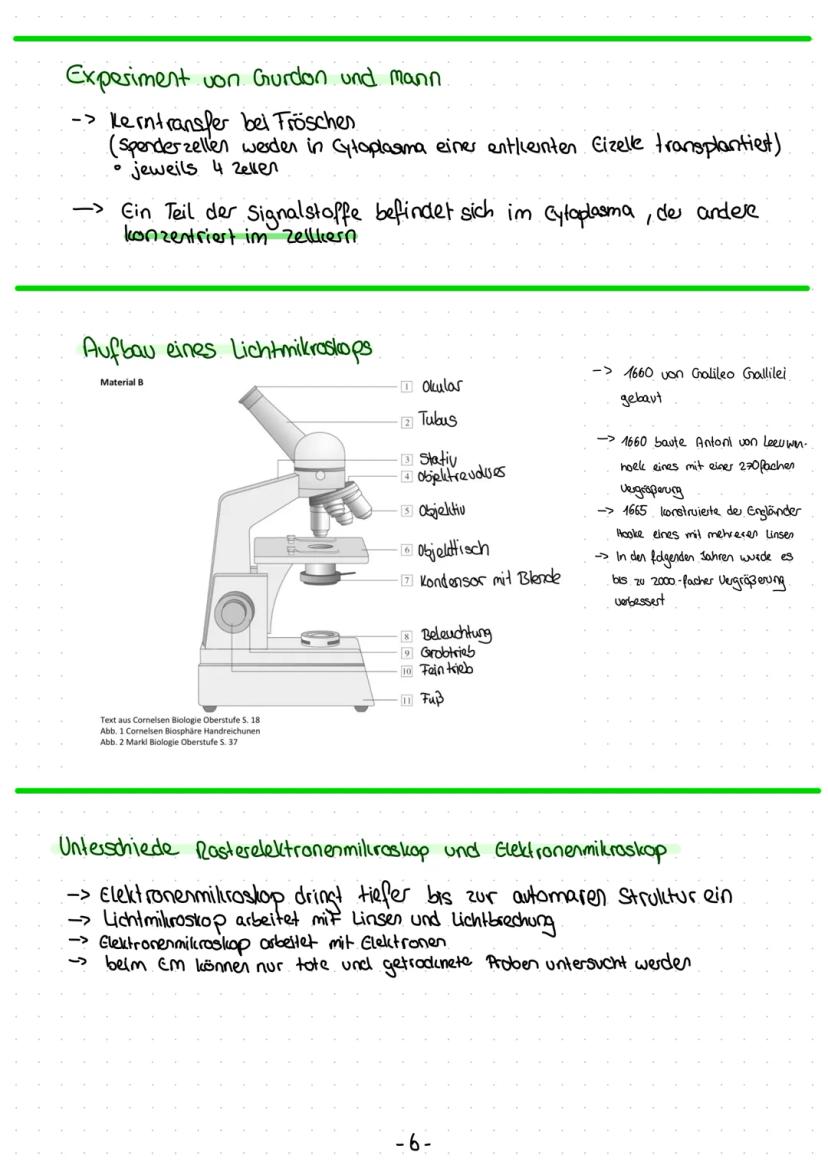 Experiment von Gurdon und Mann
-> Kerntransfer bei Fröschen
(Spenderzellen werden in Cytoplasma einer entkernten Eizelle transplantiert)
• jeweils 4 Zellen
-> Ein Teil der Signalstoffe befindet sich im Cytoplasma, der andere
konzentriert im Zellkern
Aufbau eines Lichtmikroskops
Material B
1 Okular
2 Tubus
3 Stativ
4 Objektrevolver
5 Objektiv
6 Objekttisch
7 Kondensor mit Blende
8 Beleuchtung
9 Grobtrieb
10 Feintrieb
11 Fuß
Text aus Cornelsen Biologie Oberstufe S. 18
Abb. 1 Cornelsen Biosphäre Handreichunen
Abb. 2 Markl Biologie Oberstufe S. 37
-> 1660 von Galileo Gallilei
gebaut
-> 1660 baute Antoni von Leeuwn-
hoek eines mit einer 270fachen
Vergrößerung
-> 1665 konstruierte der Engländer
Hooke eines mit mehreren Linsen
-> In den folgenden Jahren wurde es
bis zu 2000-facher Vergrößerung
verbessert
Unterschiede Rasterelektronenmikroskop und Elektronenmikroskop
-> Elektronenmikroskop dringt tiefer bis zur automaren Struktur ein
-> Lichtmikroskop arbeitet mit Linsen und Lichtbrechung
-> Elektronenmikroskop arbeitet mit Elektronen
-> beim EM können nur tote und getrocknete Proben untersucht werden
-6-